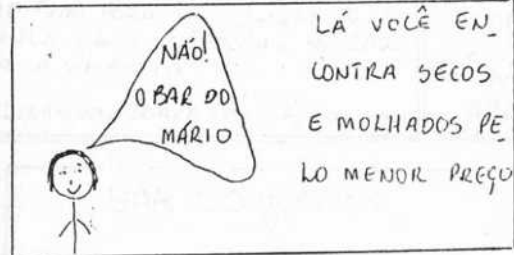 NÃO!
O BAR DO
MÁRIO
LÁ VOCÊ EN_
CONTRA SECOS
E MOLHADOS PE_
LO MENOR PREÇO